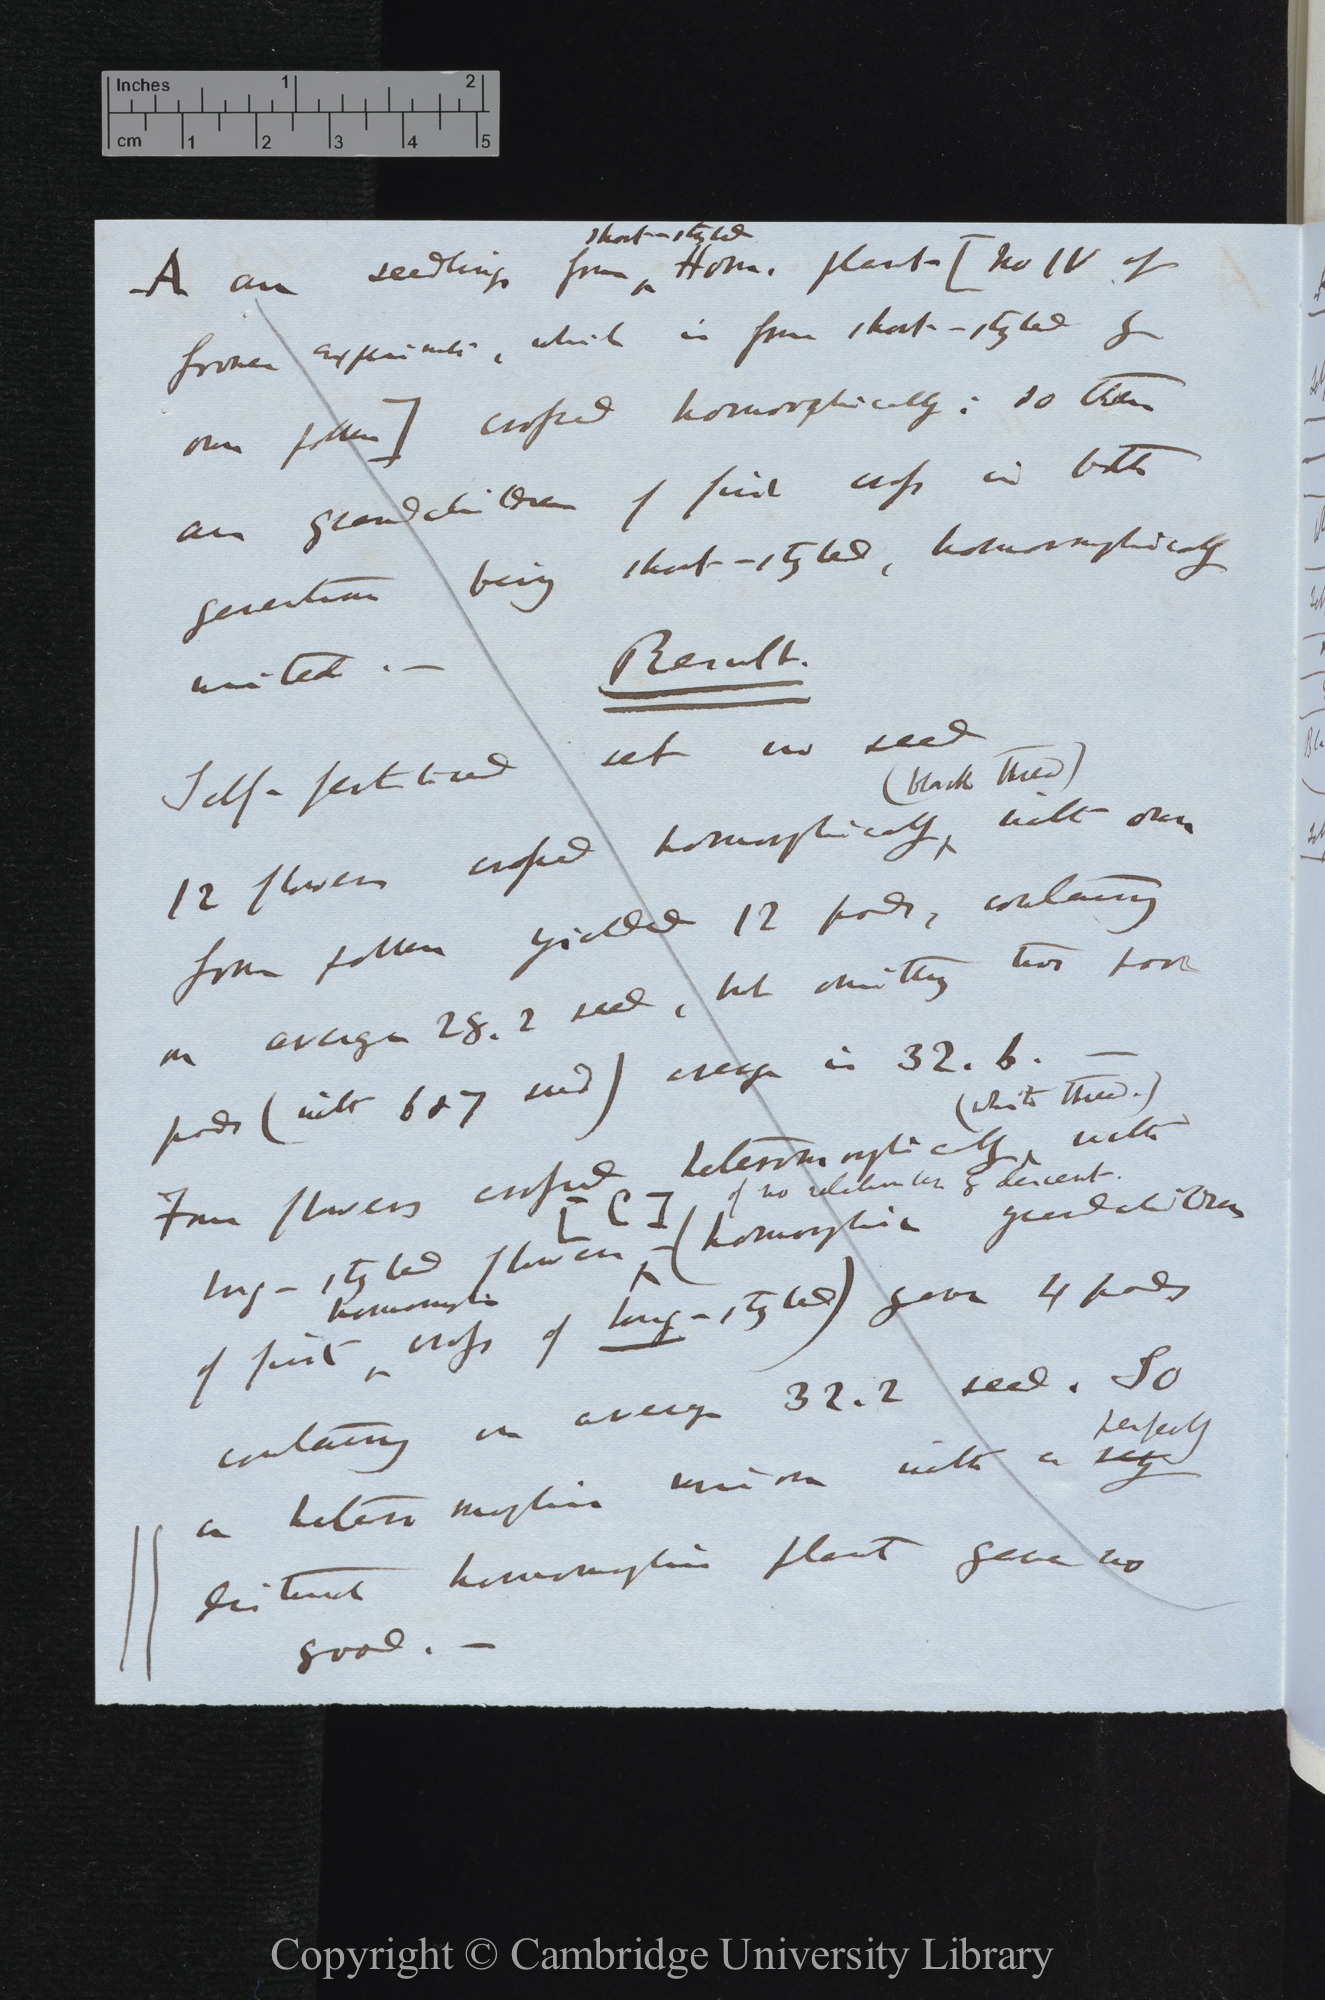 Inches 1 2
cm 1 2 3 4 5
short-styled
A are seedlings from ^ Hom. plant [no IV of
former experiments, which is from short-styled &
own pollen] crossed homomorphically; so these
are grandchildren of first cross in both
generations being short-styled, homomorphically
united. —
Result.
Self-fertilised set no seed
(black thread)
12 flowers crossed homomorphically ^ with own
form pollen yielded 12 pods, containing
on average 28.2 seed, but omitting two poor
pods (with 6 & 7 seed) average is 32.6. —
(white thread.)
Four flowers crossed heteromorphically ^ with
[C] of no relation by descent.
long-styled flowers ^ (homomorphic grandchildren
homomorphic
of first ^ cross of long-styled) gave 4 pods
containing on average 32.2 seed. So
perfectly
a heteromorphic union with a very
distinct homomorphic plant gave no
good. —
Copyright © Cambridge University Library